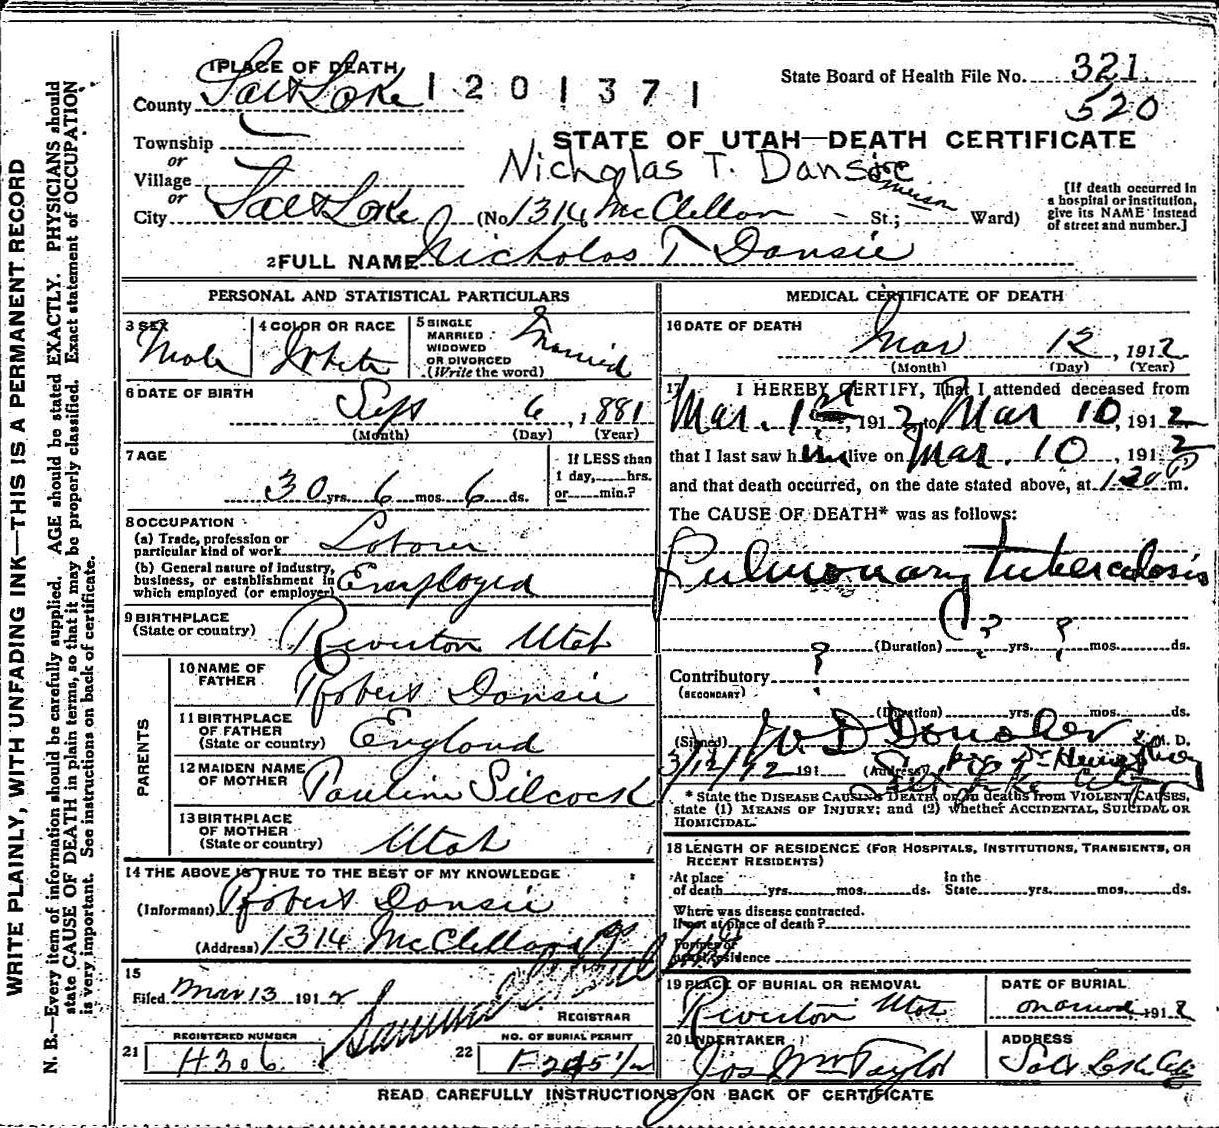 WRITE PLAINLY, WITH UNFADING INK—THIS IS A PERMANENT RECORD
N. B.—Every item of information should be carefully supplied. AGE should be stated EXACTLY. PHYSICIANS should
state CAUSE OF DEATH in plain terms, so that it may be properly classified. Exact statement of OCCUPATION
is very important. See instructions on back of certificate.
1 PLACE OF DEATH
1201371
State Board of Health File No. 321
520
County Salt Lake
Township
or
Village
or
STATE OF UTAH—DEATH CERTIFICATE
Nicholas T. Dansie
City Salt Lake (No. 1314 McClellan St.; Ward)
[If death occurred in
a hospital or institution,
give its NAME instead
of street and number.]
2 FULL NAME Nicholas T Dansie
PERSONAL AND STATISTICAL PARTICULARS
3 SEX Male
4 COLOR OR RACE White
5 SINGLE
MARRIED
WIDOWED
OR DIVORCED
(Write the word)
Married
6 DATE OF BIRTH
Sept 6, 1881
(Month) (Day) (Year)
7 AGE
30 yrs. 6 mos. 6 ds.
If LESS than
1 day, hrs.
or min.?
8 OCCUPATION
(a) Trade, profession or
particular kind of work Laborer
(b) General nature of industry,
business, or establishment in
which employed (or employer) Employed
9 BIRTHPLACE
(State or country) Riverton Utah
PARENTS
10 NAME OF
FATHER Robert Dansie
11 BIRTHPLACE
OF FATHER
(State or country) England
12 MAIDEN NAME
OF MOTHER Pauline Silcock
13 BIRTHPLACE
OF MOTHER
(State or country) Utah
14 THE ABOVE IS TRUE TO THE BEST OF MY KNOWLEDGE
(Informant) Robert Dansie
(Address) 1314 McClellan
15
Filed Mar 13 1912
REGISTRAR
21 REGISTERED NUMBER
H306
22 NO. OF BURIAL PERMIT
MEDICAL CERTIFICATE OF DEATH
16 DATE OF DEATH
Mar 12, 1912
(Month) (Day) (Year)
17 I HEREBY CERTIFY, That I attended deceased from
Mar. 1st, 1912 to Mar 10, 1912
that I last saw him alive on Mar. 10, 1912
and that death occurred, on the date stated above, at 1:30 P m.
The CAUSE OF DEATH* was as follows:
Pulmonary tuberculosis
(Duration) ? yrs. ? mos. ds.
Contributory ?
(SECONDARY)
(Duration) yrs. mos. ds.
(Signed) M. D.
3/12/12 191 (Address)
Salt Lake City
* State the DISEASE CAUSING DEATH, or in deaths from VIOLENT CAUSES,
state (1) MEANS OF INJURY; and (2) whether ACCIDENTAL, SUICIDAL OR
HOMICIDAL.
18 LENGTH OF RESIDENCE (FOR HOSPITALS, INSTITUTIONS, TRANSIENTS, OR
RECENT RESIDENTS)
At place
of death yrs. mos. ds.
In the
State yrs. mos. ds.
Where was disease contracted.
If not at place of death?
Former or
usual residence
19 PLACE OF BURIAL OR REMOVAL
Riverton Utah
DATE OF BURIAL
1912
20 UNDERTAKER
Jos Wm Taylor
ADDRESS
Salt Lake City
READ CAREFULLY INSTRUCTIONS ON BACK OF CERTIFICATE